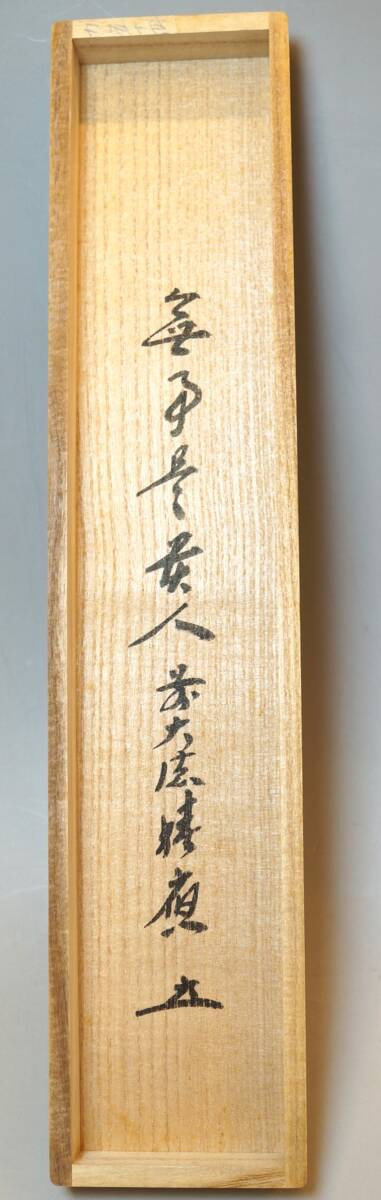 無事是貴人 前大徳晴應